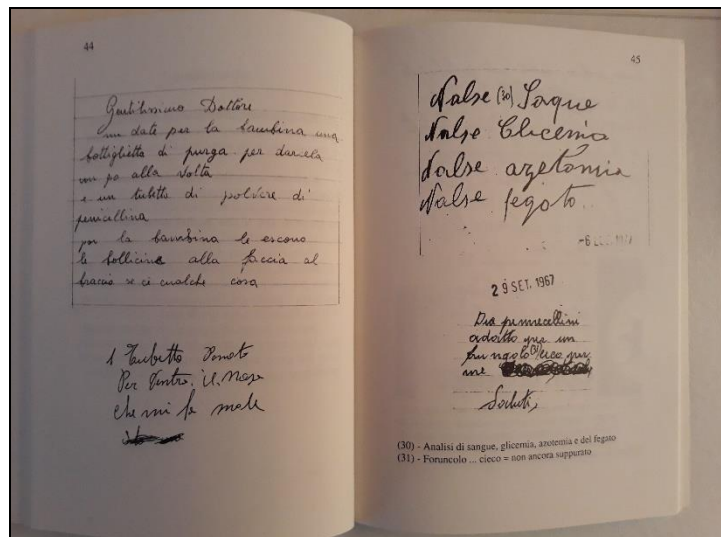 44
Gentilissimo Dottore
mi date per la bambina una
bottiglietta di purga per darcela
un po alla volta
e un tubitto di polvere di
penicellina
por la bambina le escono
le bollicine alla faccia al
braccio se ci cualche cosa
1 Tubitto Pomata
Per Dentro Il Naso
che mi fa male
45
Nalse (30) Saque
Nalse Glicemia
Nalse azetomia
Nalse fegoto
-6
29 SET. 1967
Due pennecellini
adatto per un
frungolo (31) cieco per
me
Saluti,
(30) - Analisi di sangue, glicemia, azotemia e del fegato
(31) - Foruncolo ... cieco = non ancora suppurato